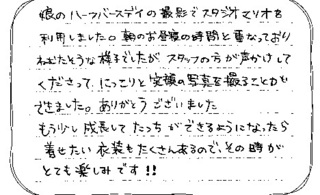 娘のハーフバースデイの撮影でスタジオマリオを
利用しました。朝のお昼寝の時間と重なっており
ねむたそうな様子でしたが、スタッフの方が声かけして
くださって、にっこりと笑顔の写真を撮ることが
できました。ありがとうございました
もう少し成長してたっちができるようになったら
着せたい衣装もたくさんあるので、その時が
とても楽しみです!!